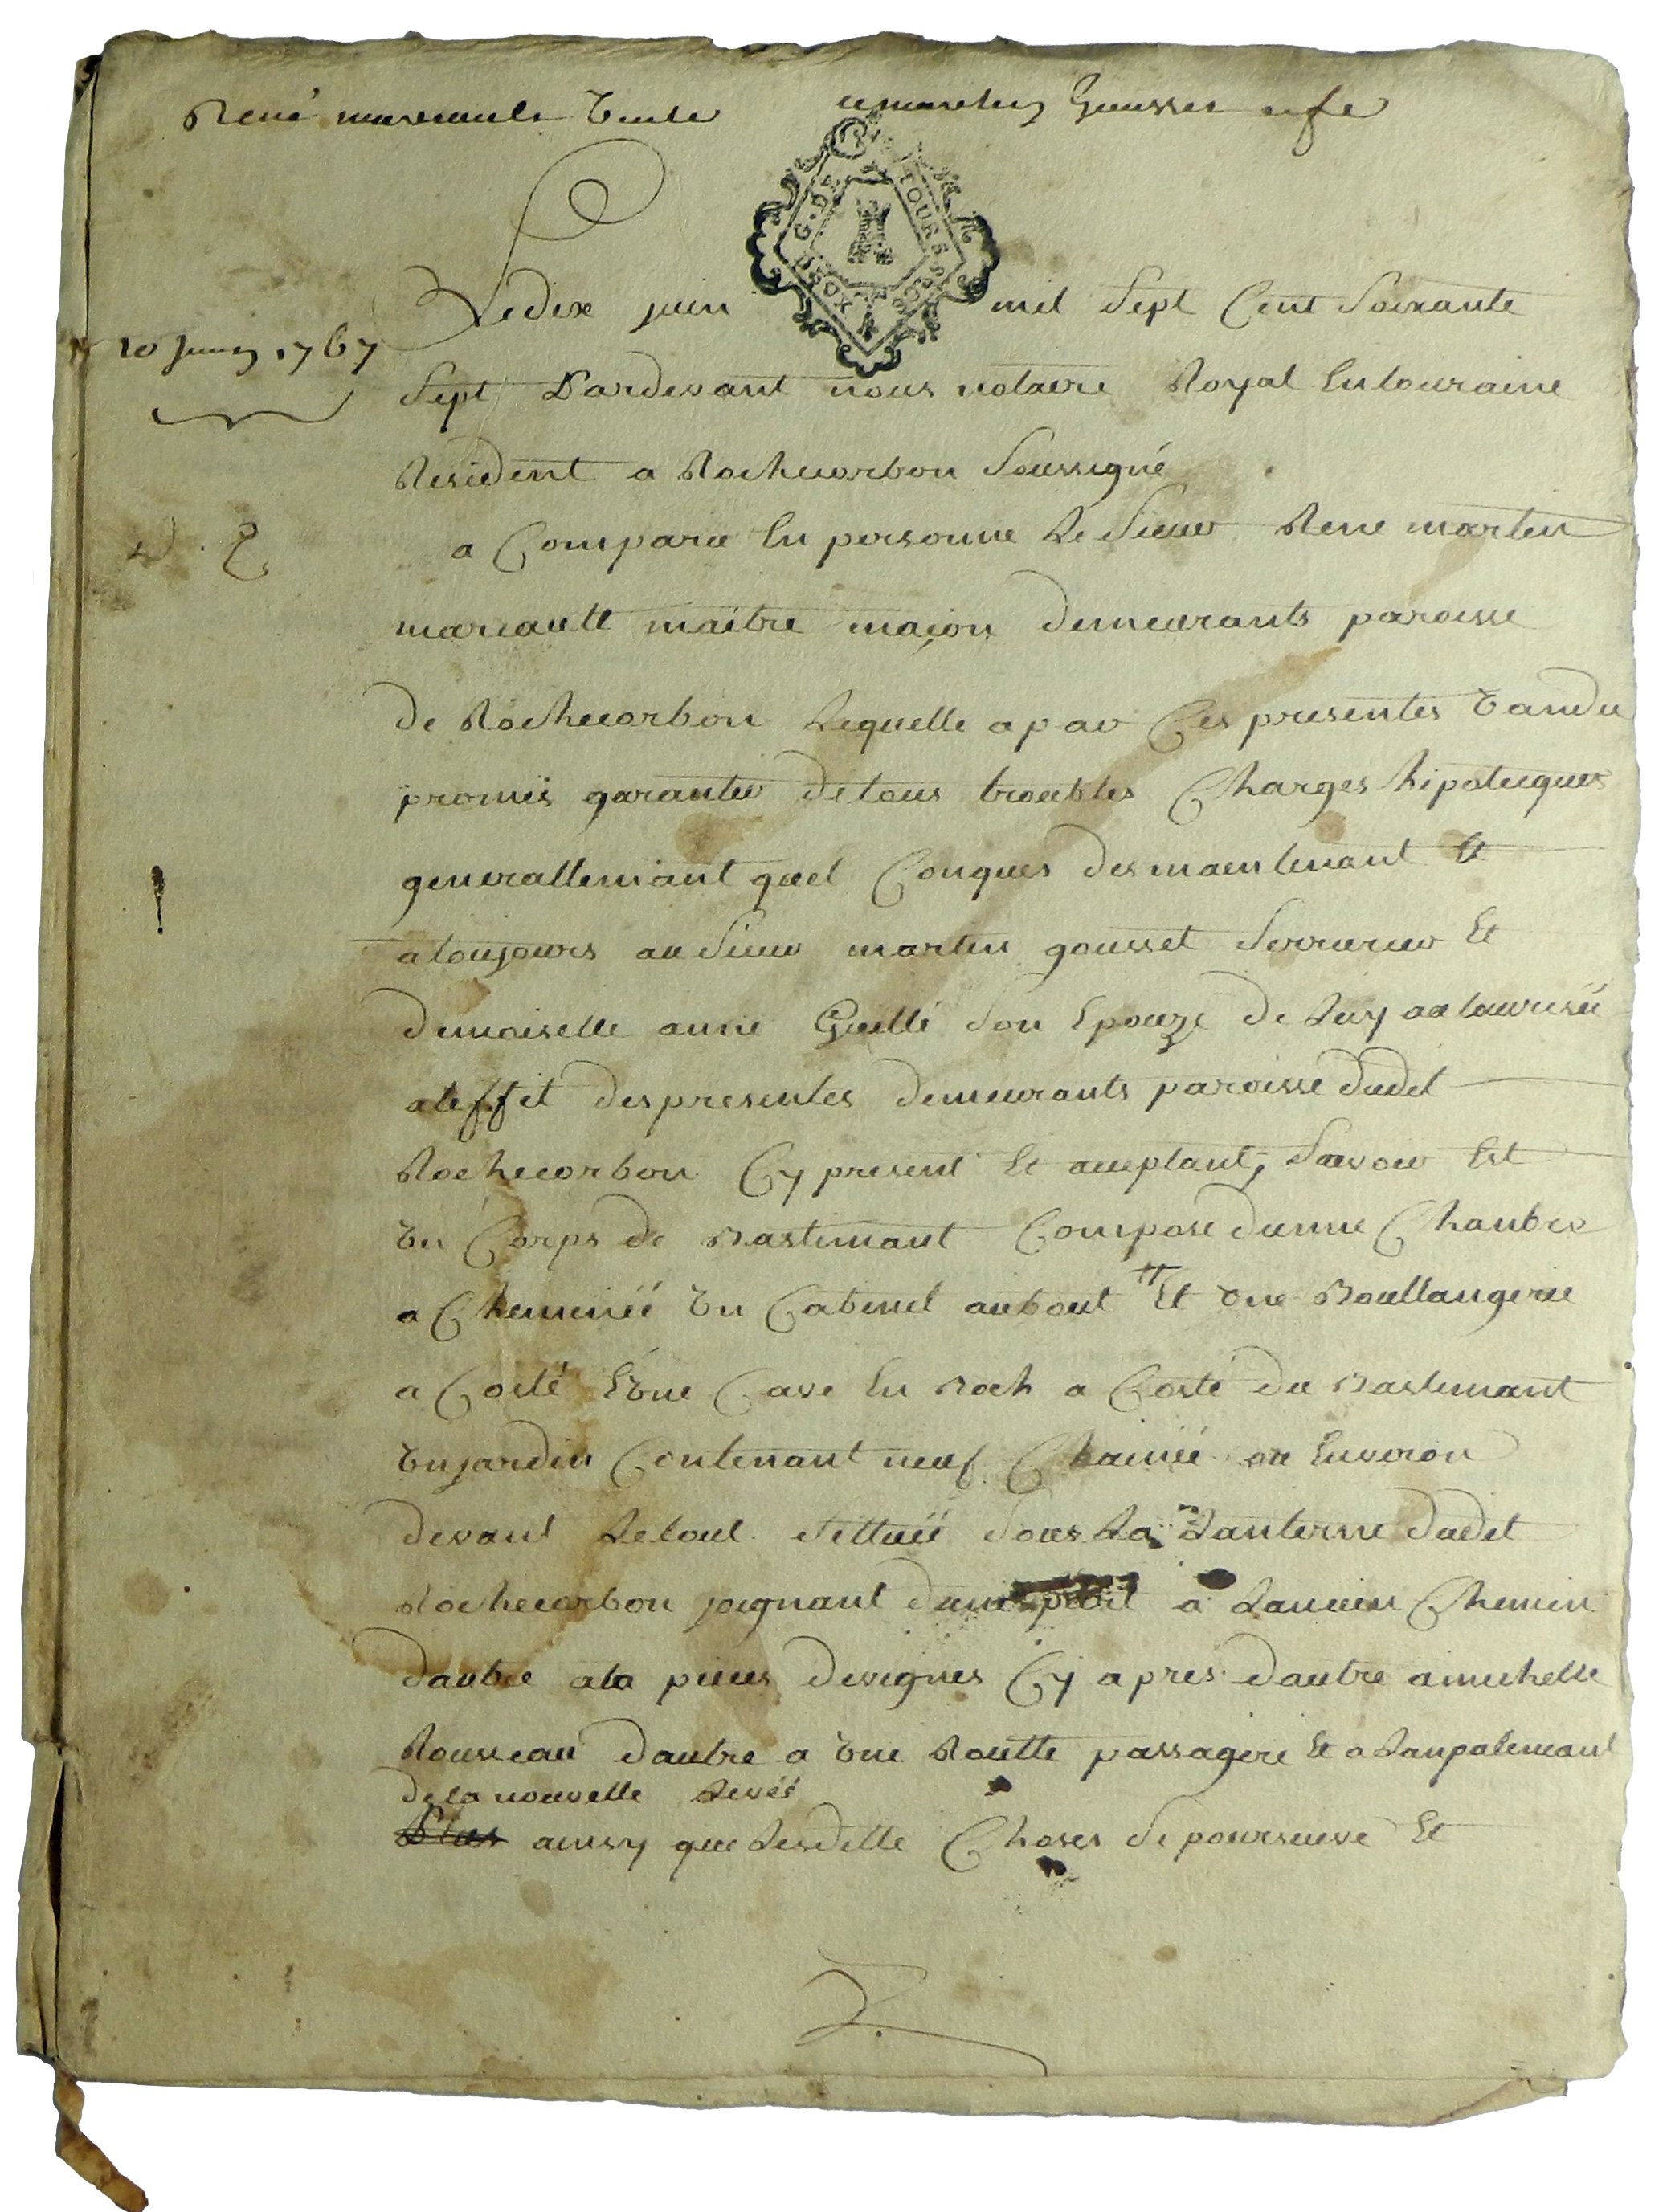 René marcault Vente a martin Gousset & fe
G. DE TOURS
DEUX SOLS
10 Juin 1767
Le dix juin mil Sept Cent Soixante
Sept Pardevant nous notaire Royal En touraine
Resident a Rochecorbon Soussigné
a Comparu En personne Le Sieur Rene martin
marcault maitre maçon demeurants paroisse
de Rochecorbon Lequelle a par Ces presentes Vandu
promis garantir de tous troubles Charges hipoteques
generallemant quel Conques des maintenant Et
a toujours au Sieur martin gousset Serrurier Et
demoiselle anne Guillé Son Epouze de Luy autaurisée
a leffet des presentes demeurants paroisse dudit
Rochecorbon Cy present Et acceptant, Savoir Est
Un Corps de Bastimant Compose dunne Chanbre
a Cheminéé Un Cabinet au bout Et Une Boullangerie
a Costé Et Une Cave En Roch a Costé du Bastimant
Un jardin Contenant neuf Chainéé ou Environ
devant Letout Sittuéé Sous La Lanterne dudit
Rochecorbon joignant a Lancien Chemin
dautre a la pieces de vignes Cy apres dautre a michelle
Rousseau dautre a Une Routte passagere Et a Lanpalemant
de la nouvelle Levéé
ainsy que Lesditte Choses Se poursuive Et